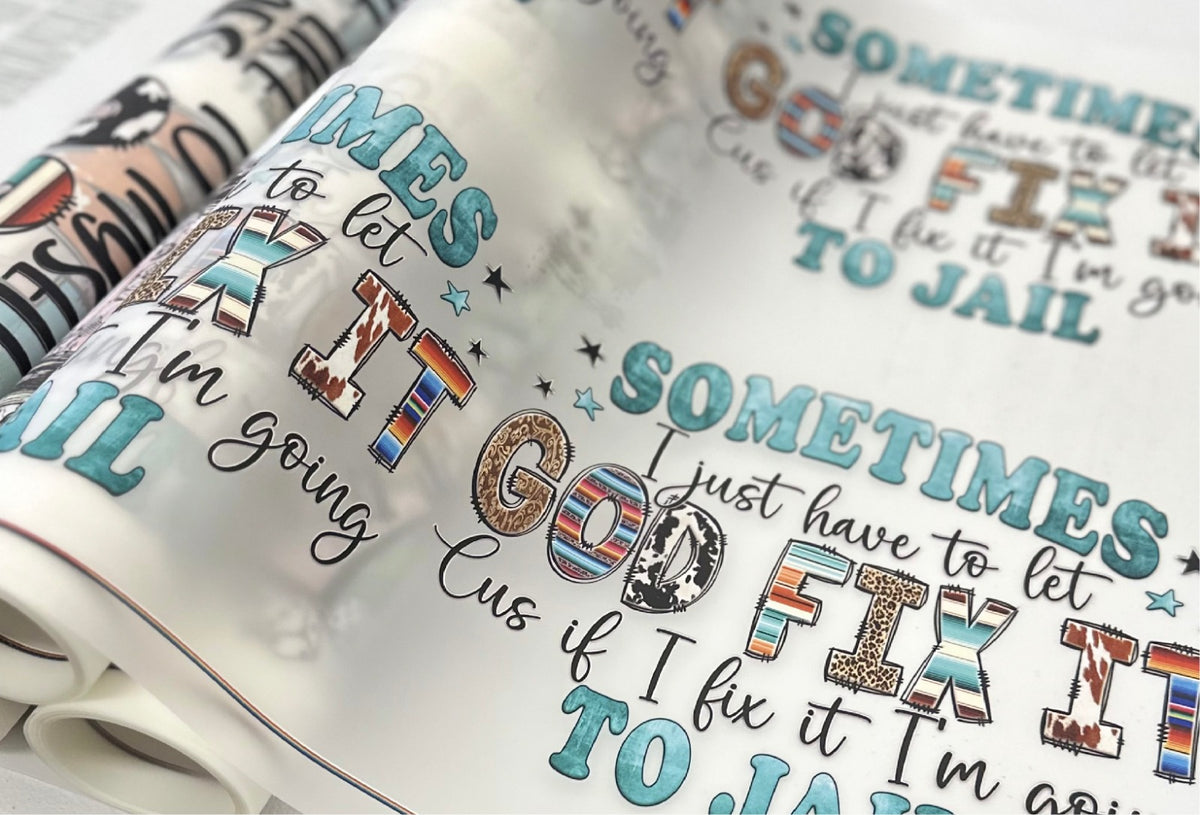 SOMETIMES
I just have to let
GOD FIX IT
Cus if I fix it I'm going
TO JAIL
SOMETIMES
I just have to let
GOD FIX
Cus if I fix it I'm go
TO JAIL
IMES
to let
IX IT
I'm going
AIL
going